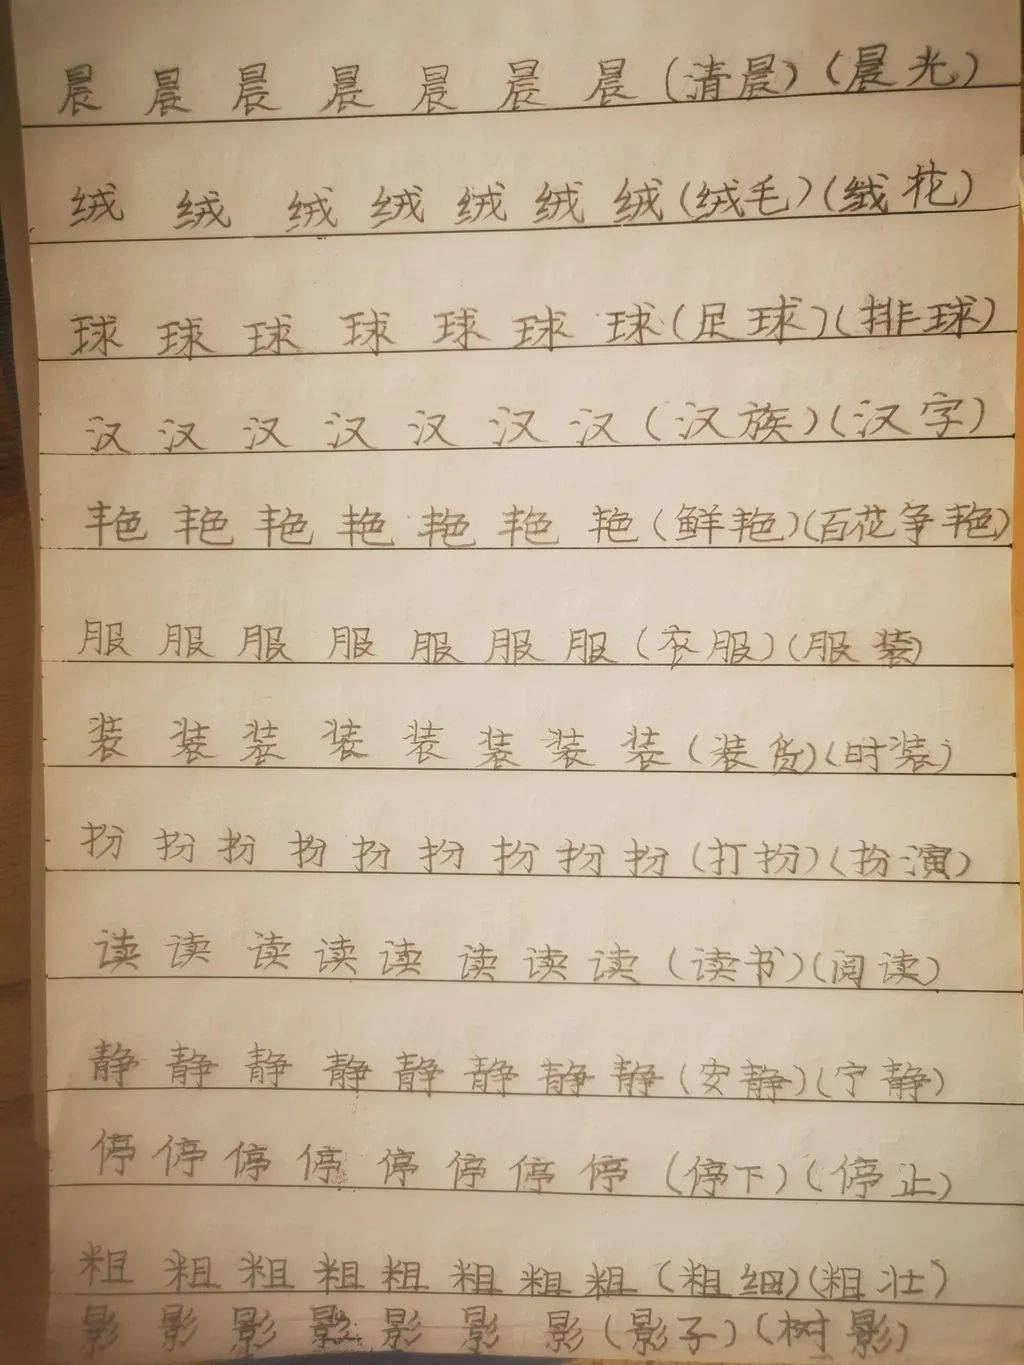 晨 晨 晨 晨 晨 晨 晨 (清晨) (晨光)
绒 绒 绒 绒 绒 绒 绒 (绒毛) (绒花)
球 球 球 球 球 球 球 (足球) (排球)
汉 汉 汉 汉 汉 汉 汉 (汉族) (汉字)
艳 艳 艳 艳 艳 艳 艳 (鲜艳) (百花争艳)
服 服 服 服 服 服 服 (衣服) (服装)
装 装 装 装 装 装 装 装 (装货) (时装)
扮 扮 扮 扮 扮 扮 扮 扮 扮 (打扮) (扮演)
读 读 读 读 读 读 读 读 (读书) (阅读)
静 静 静 静 静 静 静 静 (安静) (宁静)
停 停 停 停 停 停 停 停 (停下) (停止)
粗 粗 粗 粗 粗 粗 粗 粗 (粗细) (粗壮)
影 影 影 影 影 影 影 (影子) (树影)